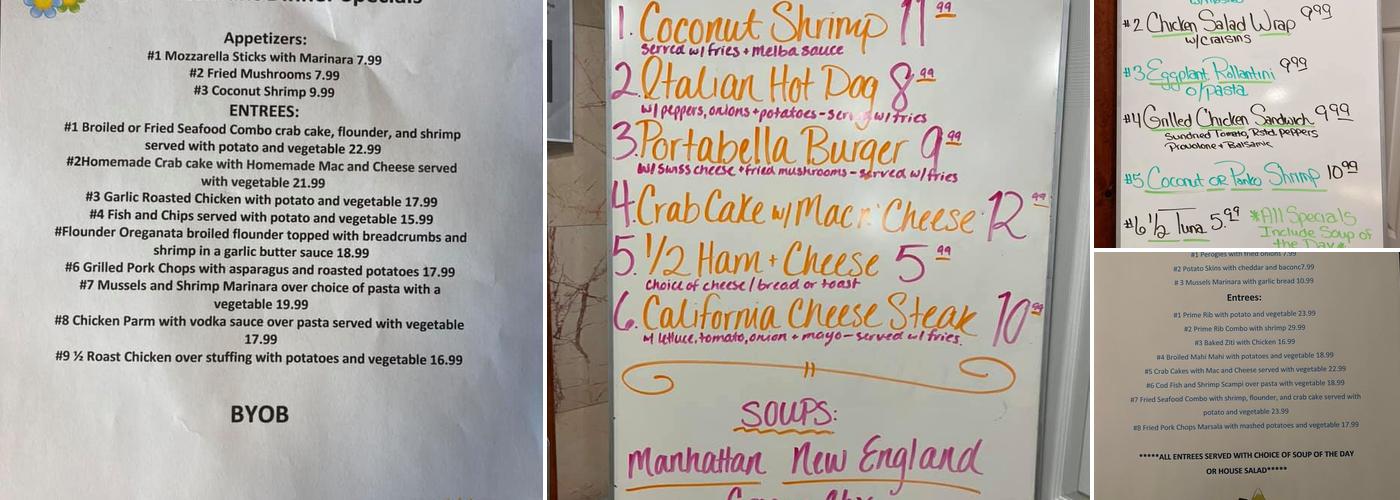 Dinner Specials
Appetizers:
#1 Mozzarella Sticks with Marinara 7.99
#2 Fried Mushrooms 7.99
#3 Coconut Shrimp 9.99
ENTREES:
#1 Broiled or Fried Seafood Combo crab cake, flounder, and shrimp
served with potato and vegetable 22.99
#2Homemade Crab cake with Homemade Mac and Cheese served
with vegetable 21.99
#3 Garlic Roasted Chicken with potato and vegetable 17.99
#4 Fish and Chips served with potato and vegetable 15.99
#Flounder Oreganata broiled flounder topped with breadcrumbs and
shrimp in a garlic butter sauce 18.99
#6 Grilled Pork Chops with asparagus and roasted potatoes 17.99
#7 Mussels and Shrimp Marinara over choice of pasta with a
vegetable 19.99
#8 Chicken Parm with vodka sauce over pasta served with vegetable
17.99
#9 ½ Roast Chicken over stuffing with potatoes and vegetable 16.99
BYOB
1. Coconut Shrimp 11 99
served w/ fries + melba sauce
2. Italian Hot Dog 8 99
w/ peppers, onions + potatoes - serving w/ fries
3. Portabella Burger 9 99
w/ swiss cheese + fried mushrooms - served w/ fries
4. Crab Cake w/ Mac n' Cheese 12 99
5. 1/2 Ham + Cheese 5 99
choice of cheese / bread or toast
6. California Cheese Steak 10 99
w/ lettuce, tomato, onion + mayo - served w/ fries
SOUPS:
Manhattan New England
#2 Chicken Salad Wrap 9 99
w/ craisins
#3 Eggplant Rollantini 9 99
o/pasta
#4 Grilled Chicken Sandwich 9 99
Sundried Tomato, Rstd. Peppers
Provolone + Balsamic
#5 Coconut OR Panko Shrimp 10 99
#6 1/2 Tuna 5.99
*All Specials
Include Soup of
the Day*
#1 Perogies with fried onions 7.99
#2 Potato Skins with cheddar and baconc7.99
# 3 Mussels Marinara with garlic bread 10.99
Entrees:
#1 Prime Rib with potato and vegetable 23.99
#2 Prime Rib Combo with shrimp 29.99
#3 Baked Ziti with Chicken 16.99
#4 Broiled Mahi Mahi with potatoes and vegetable 18.99
#5 Crab Cakes with Mac and Cheese served with vegetable 22.99
#6 Cod Fish and Shrimp Scampi over pasta with vegetable 18.99
#7 Fried Seafood Combo with shrimp, flounder, and crab cake served with
potato and vegetable 23.99
#8 Fried Pork Chops Marsala with mashed potatoes and vegetable 17.99
*****ALL ENTREES SERVED WITH CHOICE OF SOUP OF THE DAY
OR HOUSE SALAD*****